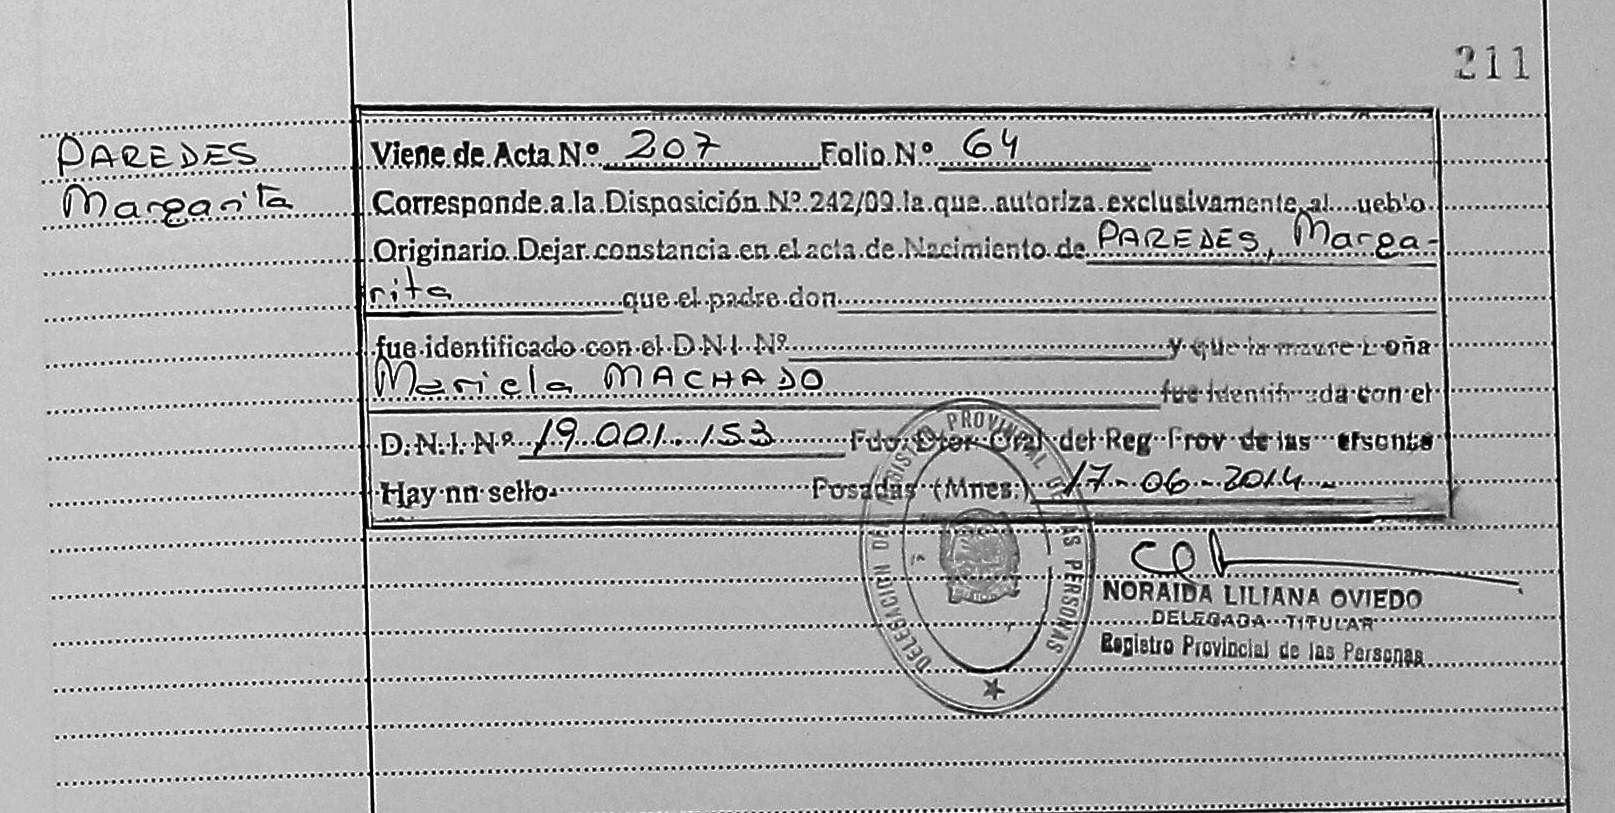 211
PAREDES
Margarita
Viene de Acta Nº 207 Folio Nº 64
Corresponde a la Disposición Nº 242/09 la que autoriza exclusivamente al
Originario Dejar constancia en el acta de Nacimiento de PAREDES, Marga-
rita que el padre don
fue identificado con el D.N.I. Nº y que la
Mariela MACHADO fue con el
D.N.I. Nº 19.001.153 Fdo. Dtor Gral del Reg Prov de las
Hay nn sello. Posadas (Mnes.) 17-06-2014
DELEGACION DE REGISTRO PROVINCIAL DE LAS PERSONAS
NORAIDA LILIANA OVIEDO
DELEGADA TITULAR
Registro Provincial de las Personas